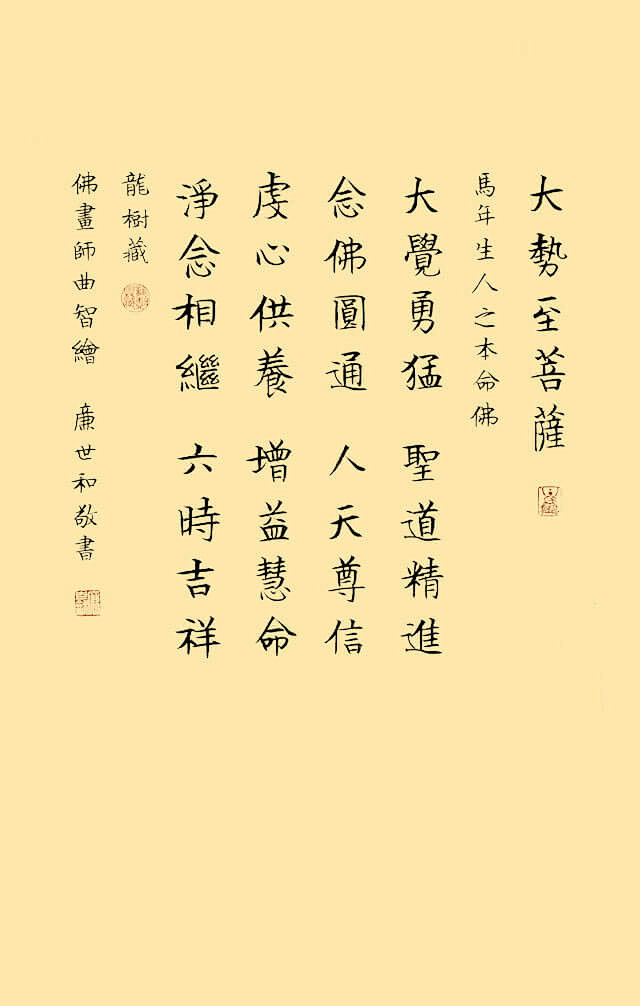 大勢至菩薩
馬年生人之本命佛
大覺勇猛 聖道精進
念佛圓通 人天尊信
虔心供養 增益慧命
淨念相繼 六時吉祥
龍樹藏
佛畫師曲智繪 廉世和敬書